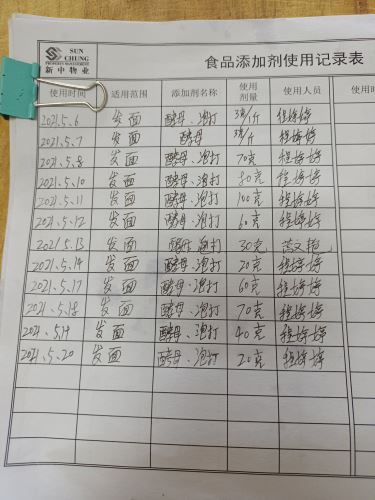 SUN CHUNG
PROPERTY MANAGEMENT
新中物业
食品添加剂使用记录表
使用时间 适用范围 添加剂名称 使用剂量 使用人员 其他
2021.5.6 发面 酵母、泡打 3克/斤 程婷婷
2021.5.7 发面 酵母 3克/斤 程婷婷
2021.5.8 发面 酵母、泡打 70克 程婷婷
2021.5.10 发面 酵母、泡打 80克 程婷婷
2021.5.11 发面 酵母、泡打 100克 程婷婷
2021.5.12 发面 酵母、泡打 60克 程婷婷
2021.5.13 发面 酵母 泡打 30克
2021.5.14 发面 酵母、泡打 20克 程婷婷
2021.5.17 发面 酵母、泡打 60克 程婷婷
2021.5.18 发面 酵母、泡打 70克 程婷婷
2021.5.19 发面 酵母、泡打 40克 程婷婷
2021.5.20 发面 酵母、泡打 20克 程婷婷